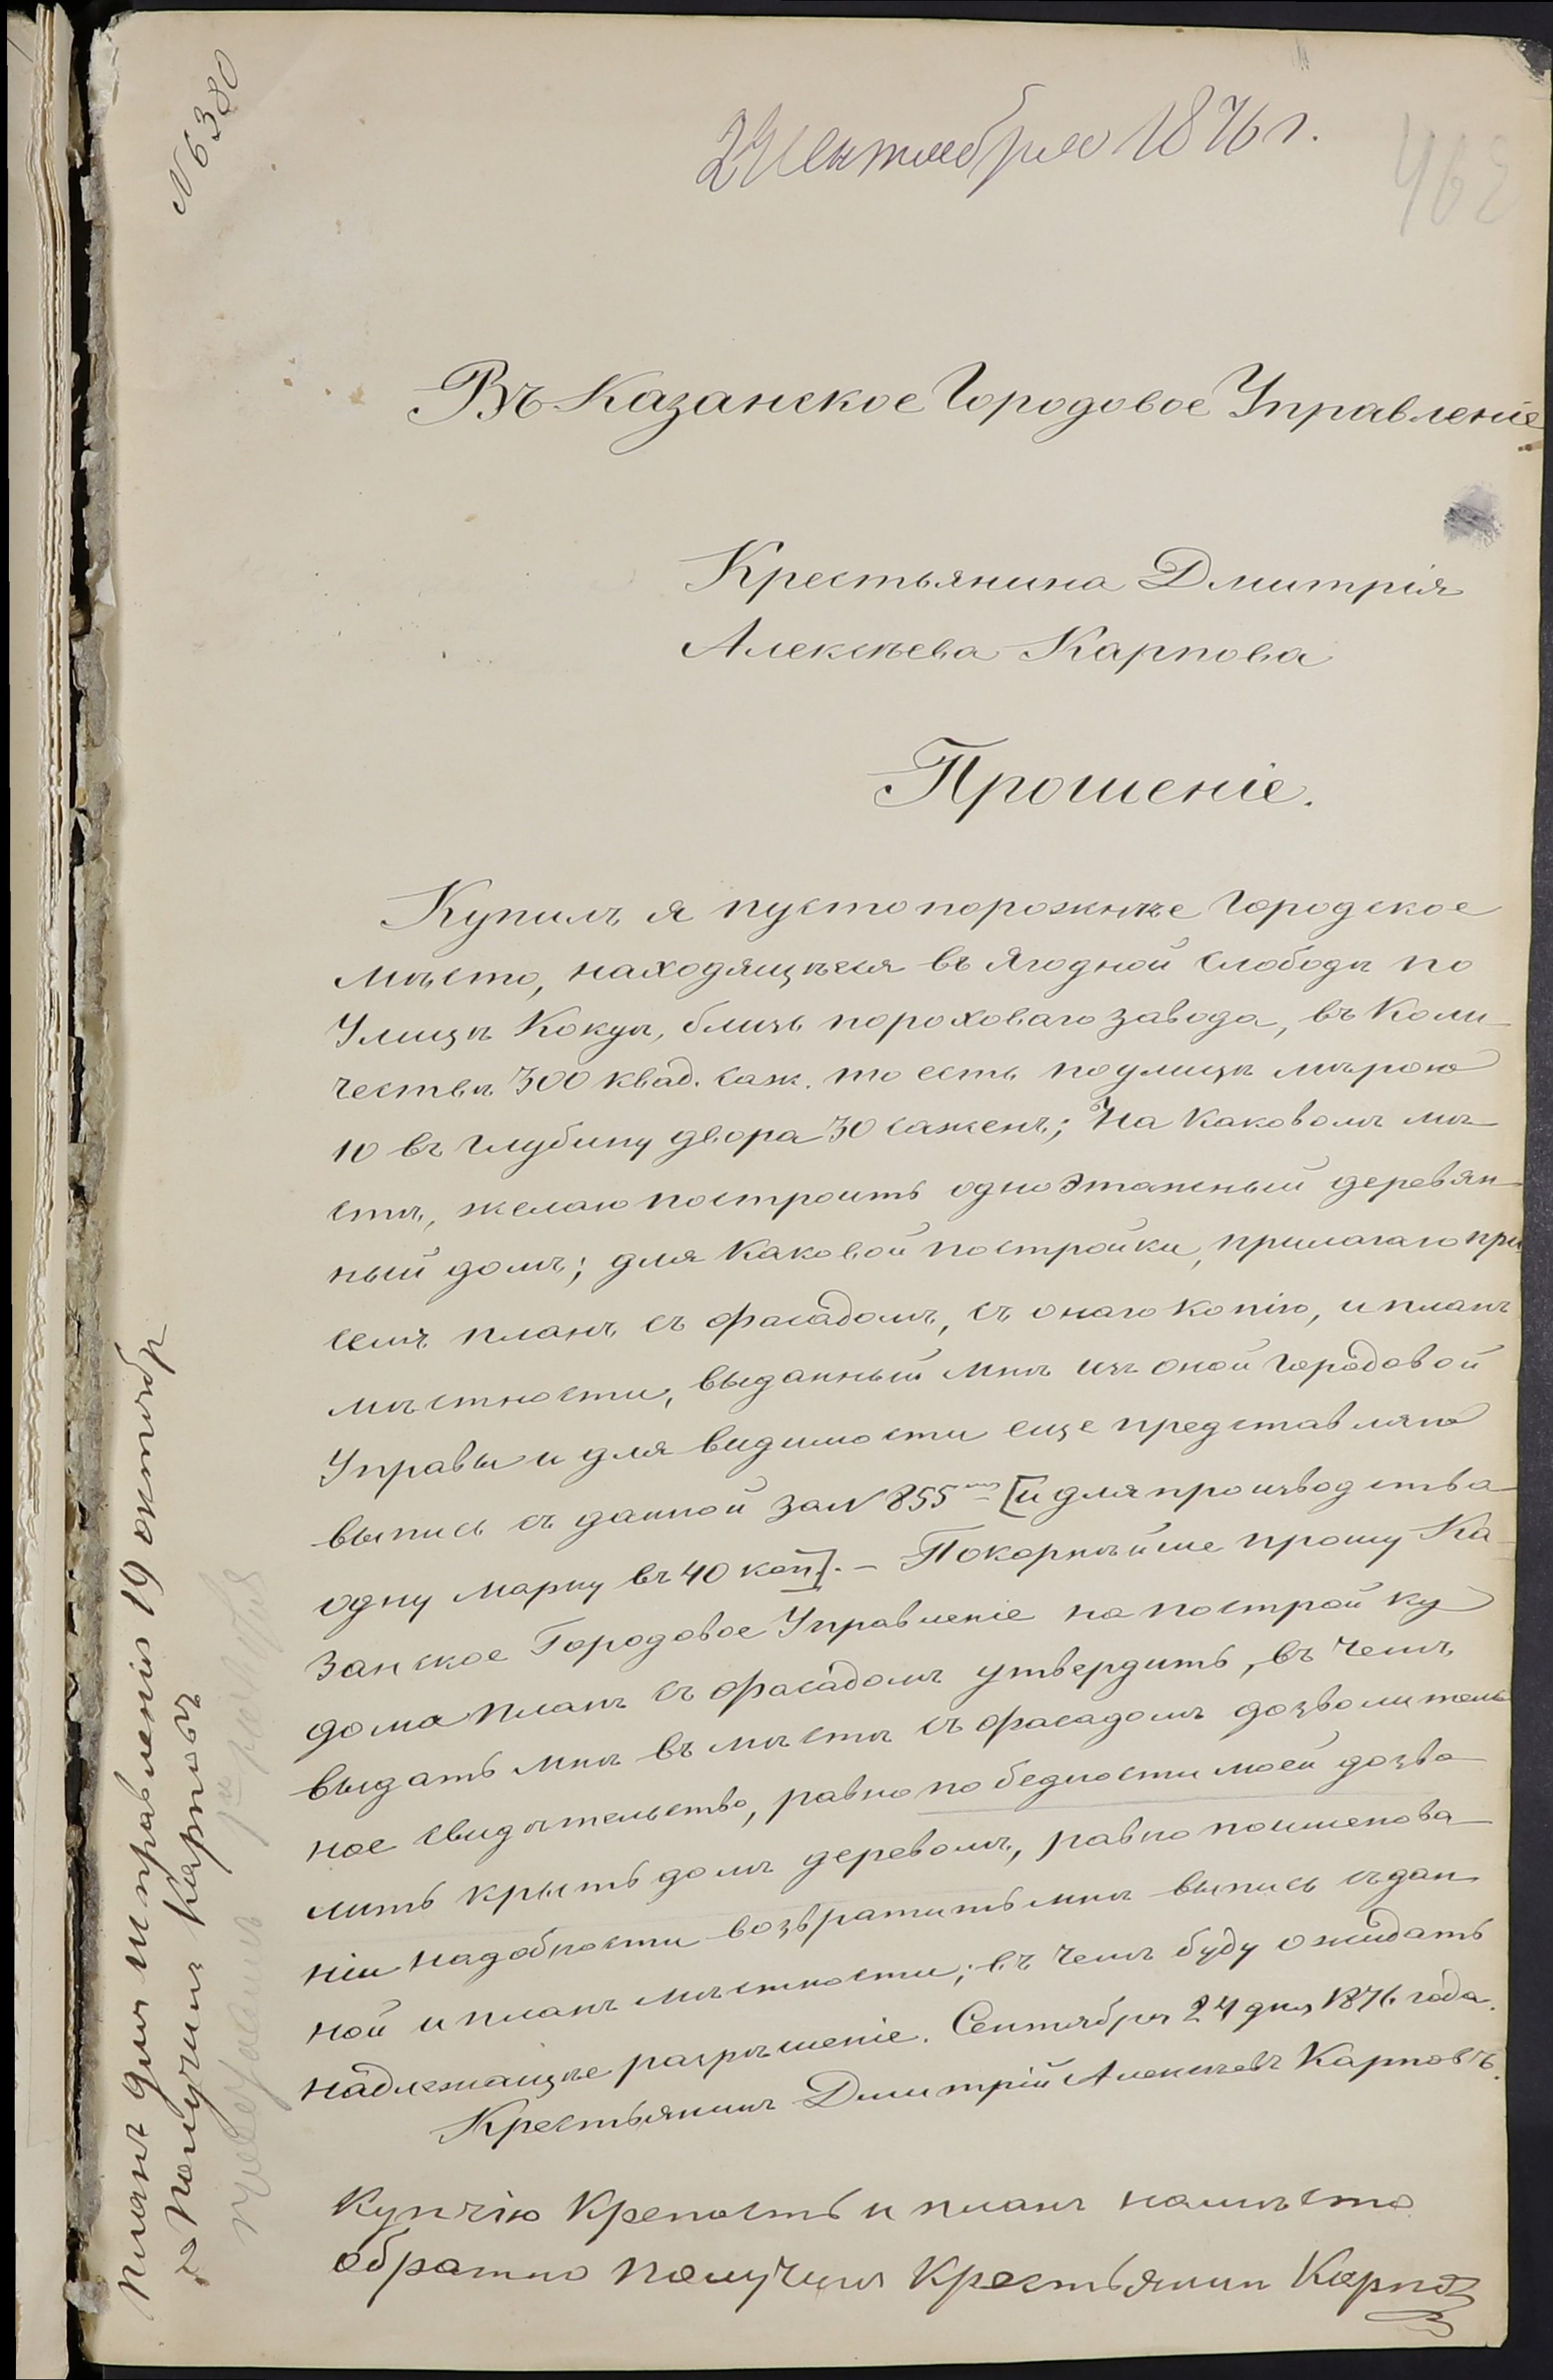 N 6380
24 Сентября 1876 г.
462
Въ Казанское Городовое Управленіе
Крестьянина Дмитрія
Алексѣева Карпова
Прошеніе.
Купилъ я пустопорожнѣе Городское
мѣсто, находящѣеся въ Ягодной Слободѣ по
Улицѣ Кокуѣ, близь пороховаго завода, въ Коли-
чествѣ 300 квад. саж. то есть по улицѣ мѣрою
10 въ глубину двора 30 саженъ; На каковомъ мѣ-
стѣ, желаю построить одноэтажный деревян-
ный домъ; для каковой постройки, прилагаю при
семъ планъ съ фасадомъ, съ онаго копію, и планъ
мѣстности, выданный мнѣ изъ оной Городовой
Управы и для видимости еще представляю
выпись съ данной за N 855 [и для производства
одну марку въ 40 коп]. - Покорнѣйше прошу Ка-
занское Городовое Управленіе на постройку
дома планъ съ фасадомъ утвердить, въ чемъ
выдать мнѣ въ мѣстѣ съ фасадомъ дозволитель
ное свидѣтельство, равно по бедности моей дозво-
лить крыть домъ деревомъ, равно по именова-
ніи надобности возвратить мнѣ выпись съ дан
ной и планъ мѣстности; въ чемъ буду ожидать
надлежащѣе разрѣшеніе. Сентября 24 дня 1876 года.
Крестьянинъ Дмитрій Алексѣевъ Карповъ.
Купчію Крепость и планъ на мѣсто
обратно получилъ Крестьянин Карпов
планъ для исправленія 19 октябр
получилъ Карповъ